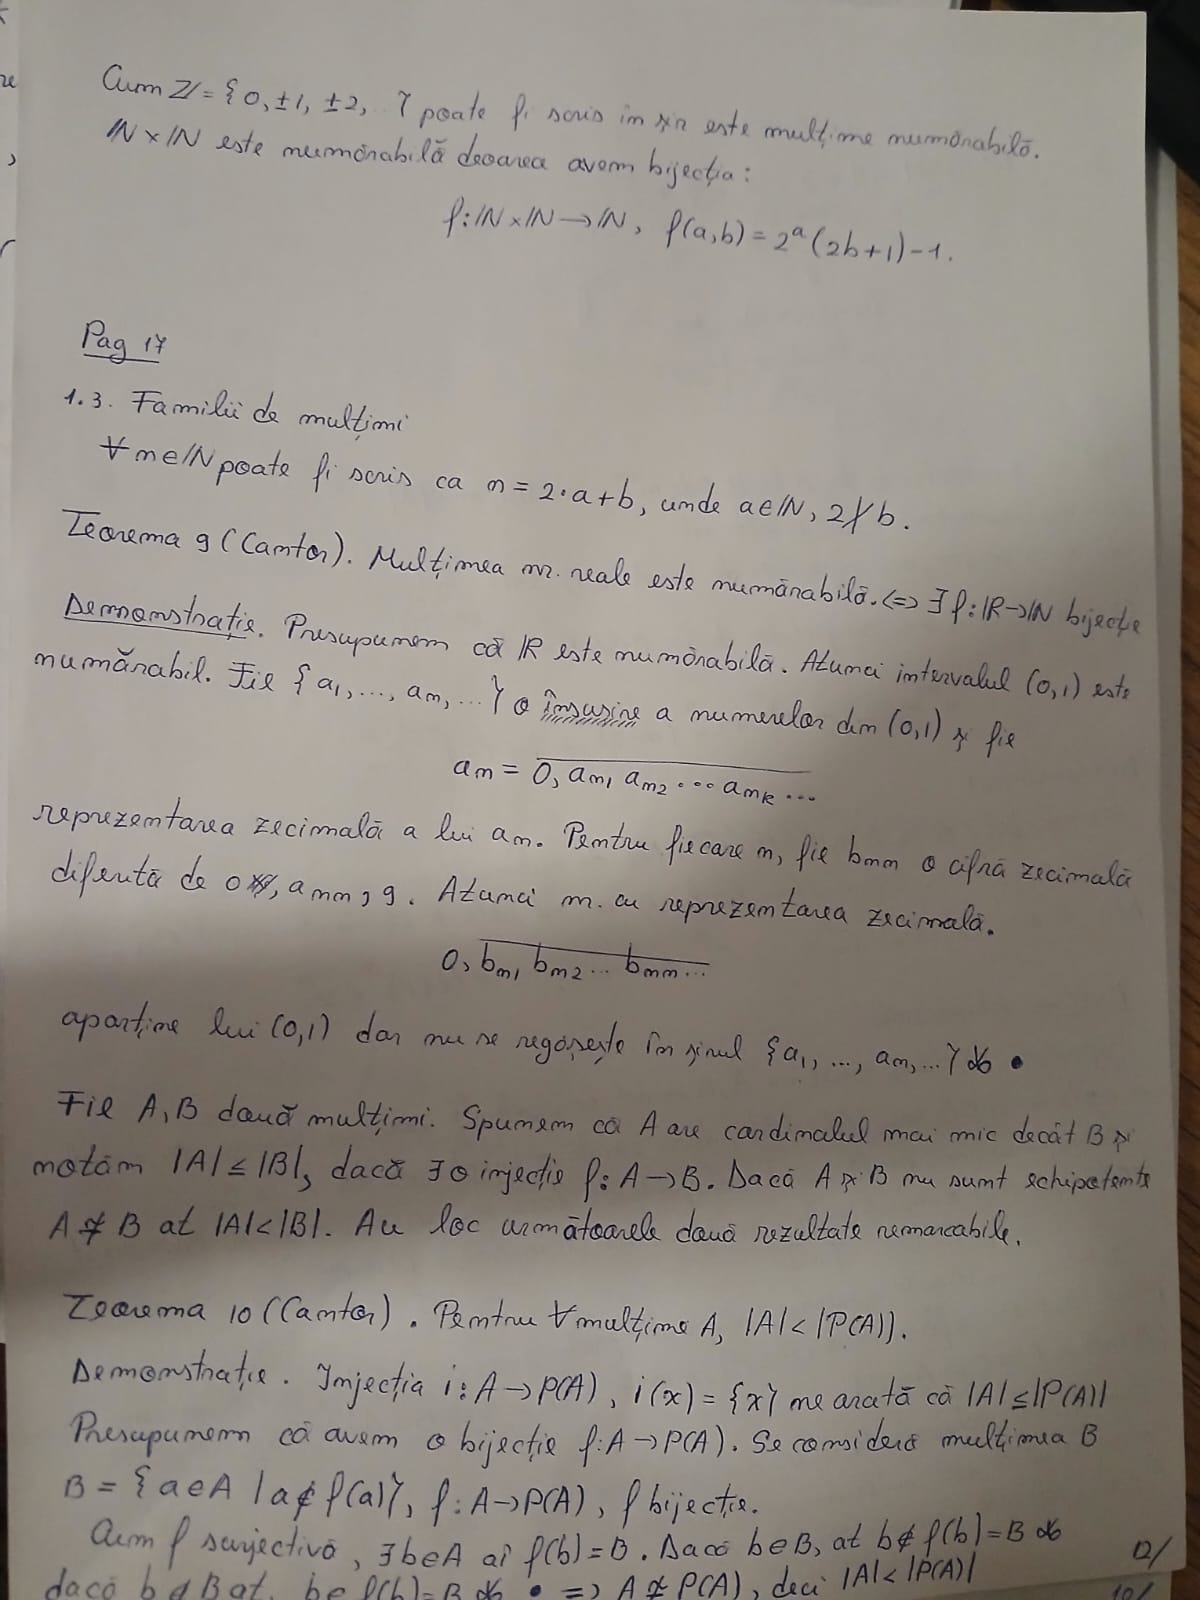 Cum ℤ = {0, ±1, ±2, ..} poate fi scris în șir este mulțime numărabilă.
ℕ×ℕ este numărabilă deoarea avem bijecția:
f: ℕ×ℕ → ℕ, f(a,b) = 2^a (2b+1) - 1.
Pag 17
1.3. Familii de mulțimi
∀ n∈ℕ poate fi scris ca n = 2·a+b, unde a∈ℕ, 2∤b.
Teorema 9 (Cantor). Mulțimea nr. reale este numărabilă. <=> ∃ f: ℝ→ℕ bijecție
Demnonstrație. Presupunem că ℝ este numărabilă. Atunci intervalul (0,1) este
numărabil. Fie {a₁, ..., aₙ, ...} o însușire a numerelor din (0,1) și fie
aₙ = 0, aₙ₁ aₙ₂ ... aₙₖ ...
reprezentarea zecimală a lui aₙ. Pentru fiecare n, fie bₙₙ o cifră zecimală
diferită de 0, aₙₙ, 9. Atunci nr. cu reprezentarea zecimală.
0, bₙ₁ bₙ₂ ... bₙₙ ...
aparține lui (0,1) dar nu se regăsește în șirul {a₁, ..., aₙ, ...} •
Fie A, B două mulțimi. Spunem că A are cardinalul mai mic decât B și
notăm |A| ≤ |B|, dacă ∃ o injecție f: A→B. Dacă A și B nu sunt echipotente
A ≄ B at |A| < |B|. Au loc următoarele două rezultate remarcabile.
Teorema 10 (Cantor). Pentru ∀ mulțime A, |A| < |P(A)|.
Demonstrație. Injecția i: A→P(A), i(x) = {x} ne arată că |A| ≤ |P(A)|
Presupunem că avem o bijecție f: A→P(A). Se consideră mulțimea B
B = {a∈A | a∉f(a)}, f: A→P(A), f bijecție.
Cum f surjectivă, ∃ b∈A aî f(b) = B. Dacă b∈B, at b∉f(b) = B
12/
dacă b∉B at. b∈f(b) = B • => A ≄ P(A), deci |A| < |P(A)|